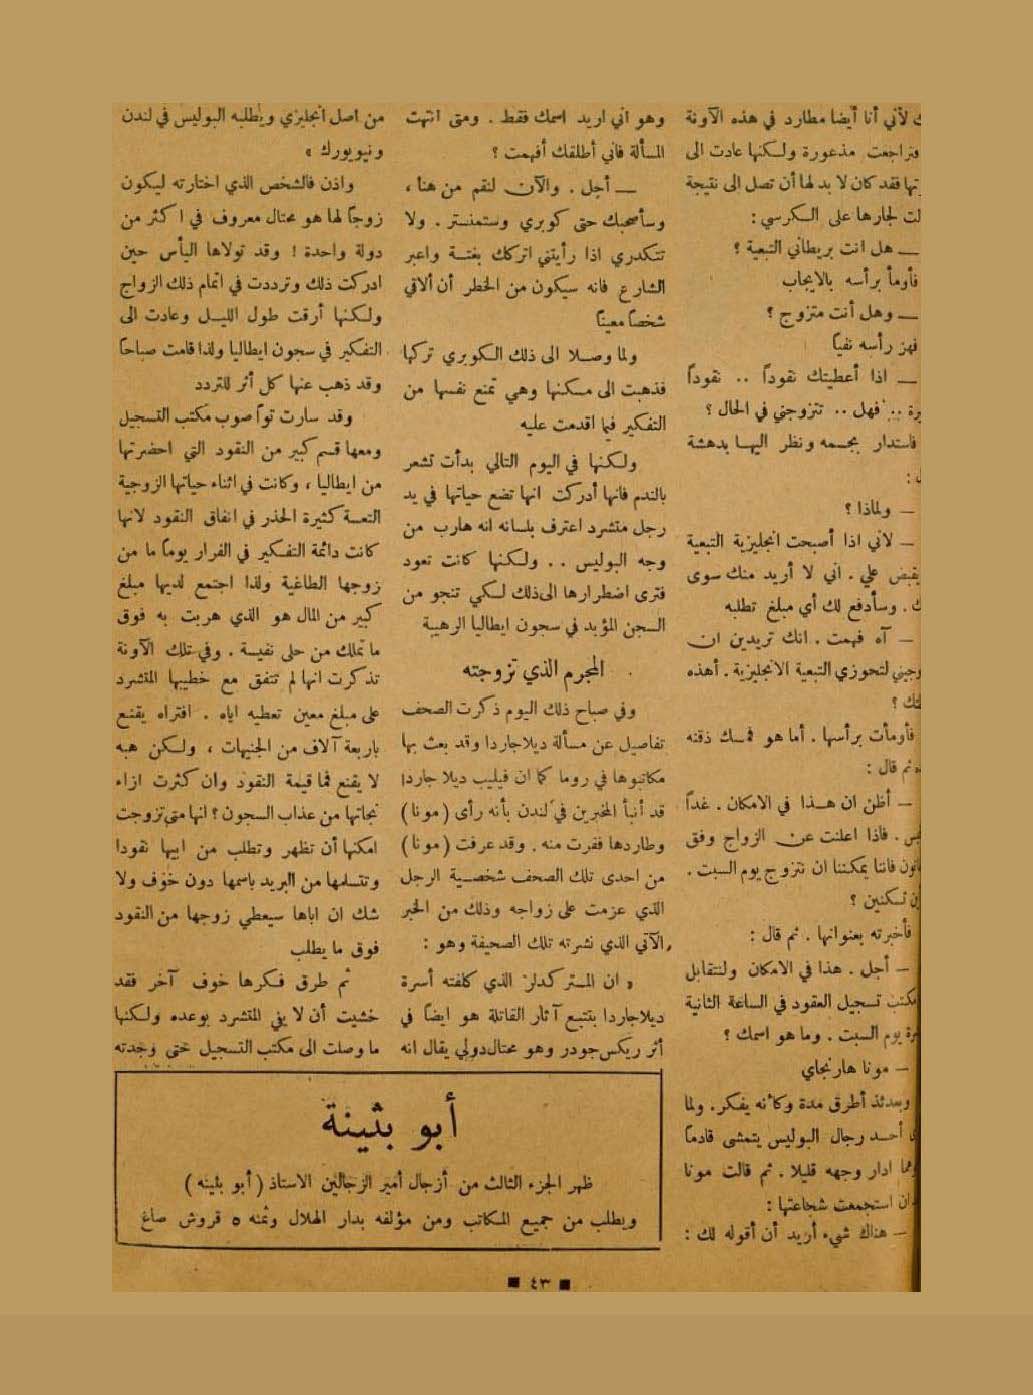 لأني أنا أيضا مطارد في هذه الآونة
فتراجعت مذعورة ولكنها عادت الى
فقد كان لا بد لها أن تصل الى نتيجة
لجارها على الكرسي :
— هل انت بريطاني التبعية ؟
فأومأ برأسه بالايجاب
— وهل أنت متزوج ؟
فهز رأسه نفياً
— اذا أعطيتك نقوداً .. نقوداً
.. فهل .. تتزوجني في الحال ؟
فاستدار بجسمه ونظر اليها بدهشة
:
— ولماذا ؟
— لاني اذا أصبحت انجليزية التبعية
علي . اني لا أريد منك سوى
. وسأدفع لك أي مبلغ تطلبه
— آه فهمت . انك تريدين ان
لتحوزي التبعية الانجليزية . أهذه
؟
فأومأت برأسها . أما هو فمسك ذقنه
ثم قال :
— أظن ان هذا في الامكان . غداً
. فاذا اعلنت عن الزواج وفق
فاننا يمكننا ان نتزوج يوم السبت .
تسكنين ؟
فأخبرته بعنوانها . ثم قال :
— أجل . هذا في الامكان ولنتقابل
تسجيل العقود في الساعة الثانية
يوم السبت . وما هو اسمك ؟
— مونا هارنجاي
وبعدئذ أطرق مدة وكأنه يفكر . ولما
أحد رجال البوليس يتمشى قادماً
ادار وجهه قليلا . ثم قالت مونا
ان استجمعت شجاعتها :
— هناك شيء أريد أن أقوله لك :
وهو اني اريد اسمك فقط . ومتى انتهت
المسألة فاني أطلقك أفهمت ؟
— أجل . والآن لنقم من هنا ،
وسأصحبك حتى كوبري وستمنستر . ولا
تتكدري اذا رأيتني اتركك بغتة واعبر
الشارع فانه سيكون من الخطر أن ألاقي
شخصاً معيناً
ولما وصلا الى ذلك الكوبري تركها
فذهبت الى مسكنها وهي تمنع نفسها من
التفكير فيما اقدمت عليه
ولكنها في اليوم التالي بدأت تشعر
بالندم فانها أدركت انها تضع حياتها في يد
رجل متشرد اعترف بلسانه انه هارب من
وجه البوليس .. ولكنها كانت تعود
فترى اضطرارها الى ذلك لكي تنجو من
السجن المؤبد في سجون ايطاليا الرهيبة
المجرم الذي تزوجته
وفي صباح ذلك اليوم ذكرت الصحف
تفاصيل عن مسألة ديلاجاردا وقد بعث بها
مكاتبوها في روما كما ان فيليب ديلاجاردا
قد أنبأ المخبرين في لندن بأنه رأى (مونا)
وطاردها ففرت منه . وقد عرفت (مونا)
من احدى تلك الصحف شخصية الرجل
الذي عزمت على زواجه وذلك من الخبر
الآتي الذي نشرته تلك الصحيفة وهو :
« ان المستر كدلر الذي كلفته أسرة
ديلاجاردا بتتبع آثار القاتلة هو ايضاً في
أثر ريكس جودر وهو محتال دولي يقال انه
من اصل انجليزي ويطلبه البوليس في لندن
ونيويورك »
واذن فالشخص الذي اختارته ليكون
زوجاً لها هو محتال معروف في اكثر من
دولة واحدة ! وقد تولاها اليأس حين
ادركت ذلك وترددت في اتمام ذلك الزواج
ولكنها أرقت طول الليل وعادت الى
التفكير في سجون ايطاليا ولذا قامت صباحاً
وقد ذهب عنها كل أثر للتردد
وقد سارت تواً صوب مكتب التسجيل
ومعها قسم كبير من النقود التي احضرتها
من ايطاليا ، وكانت في اثناء حياتها الزوجية
التعسة كثيرة الحذر في انفاق النقود لانها
كانت دائمة التفكير في الفرار يوماً ما من
زوجها الطاغية ولذا اجتمع لديها مبلغ
كبير من المال هو الذي هربت به فوق
ما تملك من حلى نفيسة . وفي تلك الآونة
تذكرت انها لم تتفق مع خطيبها المتشرد
على مبلغ معين تعطيه اياه . افتراه يقنع
باربعة آلاف من الجنيهات ، ولكن هبه
لا يقنع فما قيمة النقود وان كثرت ازاء
نجاتها من عذاب السجون ؟ انها متى تزوجت
امكنها أن تظهر وتطلب من ابيها نقودا
وتتسلمها من البريد باسمها دون خوف ولا
شك ان اباها سيعطي زوجها من النقود
فوق ما يطلب
ثم طرق فكرها خوف آخر فقد
خشيت أن لا يفي المتشرد بوعده ولكنها
ما وصلت الى مكتب التسجيل حتى وجدته
أبو بثينة
ظهر الجزء الثالث من أزجال أمير الزجالين الاستاذ ( أبو بثينه )
ويطلب من جميع المكاتب ومن مؤلفه بدار الهلال وثمنه ٥ قروش صاغ
٤٣